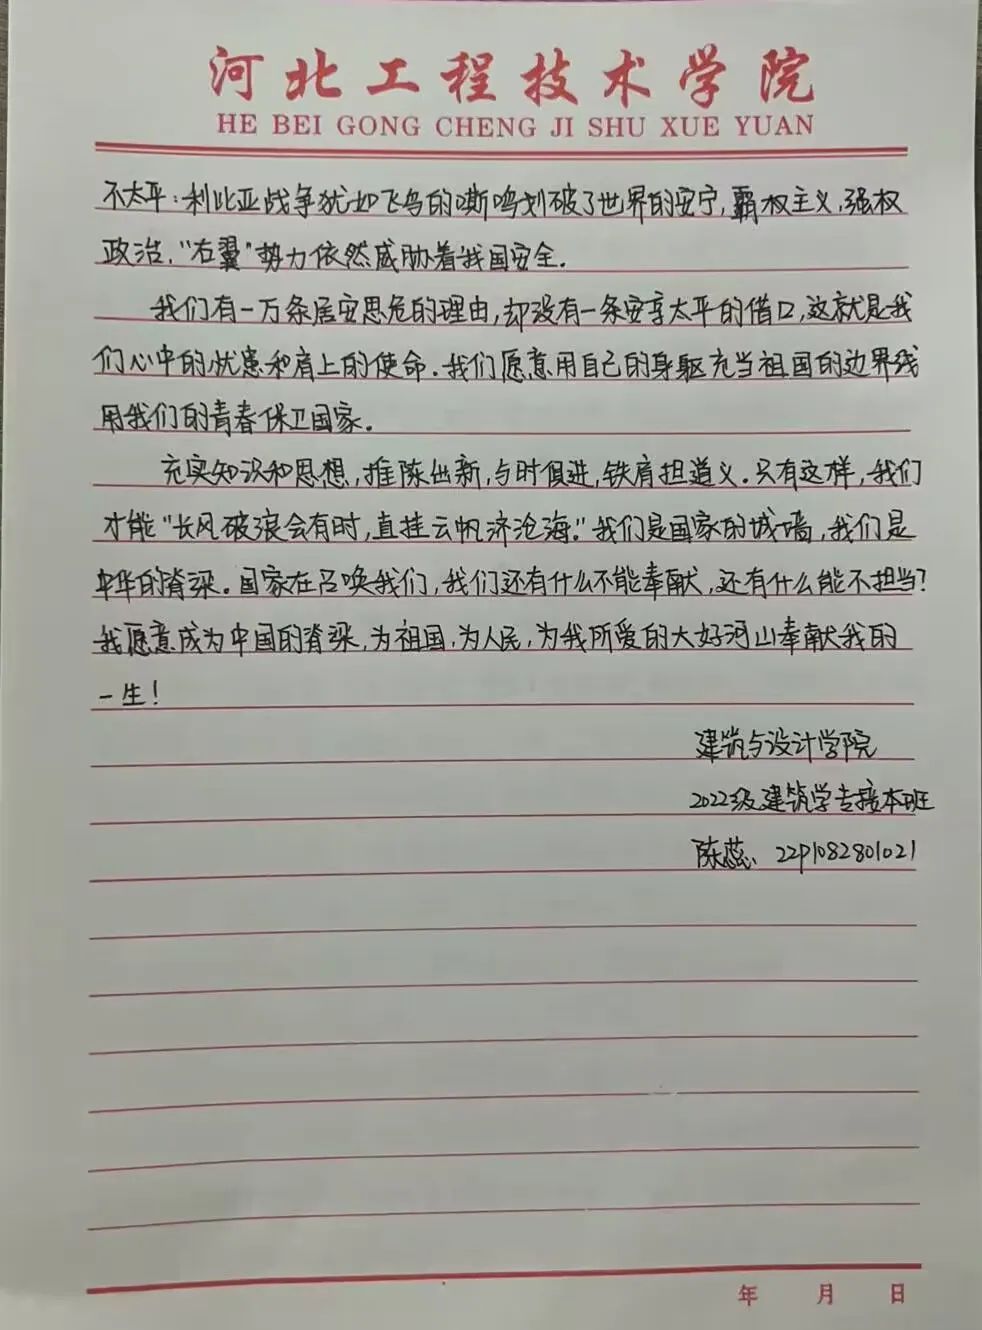 河北工程技术学院
HE BEI GONG CHENG JI SHU XUE YUAN
不太平:利比亚战争犹如飞鸟的嘶鸣划破了世界的安宁,霸权主义,强权
政治,“右翼”势力依然威胁着我国安全.
我们有一万条居安思危的理由,却没有一条安享太平的借口,这就是我
们心中的忧患和肩上的使命.我们愿意用自己的身躯充当祖国的边界线
用我们的青春保卫国家。
充实知识和思想,推陈出新,与时俱进,铁肩担道义.只有这样,我们
才能“长风破浪会有时,直挂云帆济沧海.”我们是国家的城墙,我们是
中华的脊梁。国家在召唤我们,我们还有什么不能奉献,还有什么能不担当?
我愿意成为中国的脊梁,为祖国,为人民,为我所爱的大好河山奉献我的
一生!
建筑与设计学院
2022级建筑学专接本班
陈蕊、22P1082801021
年 月 日